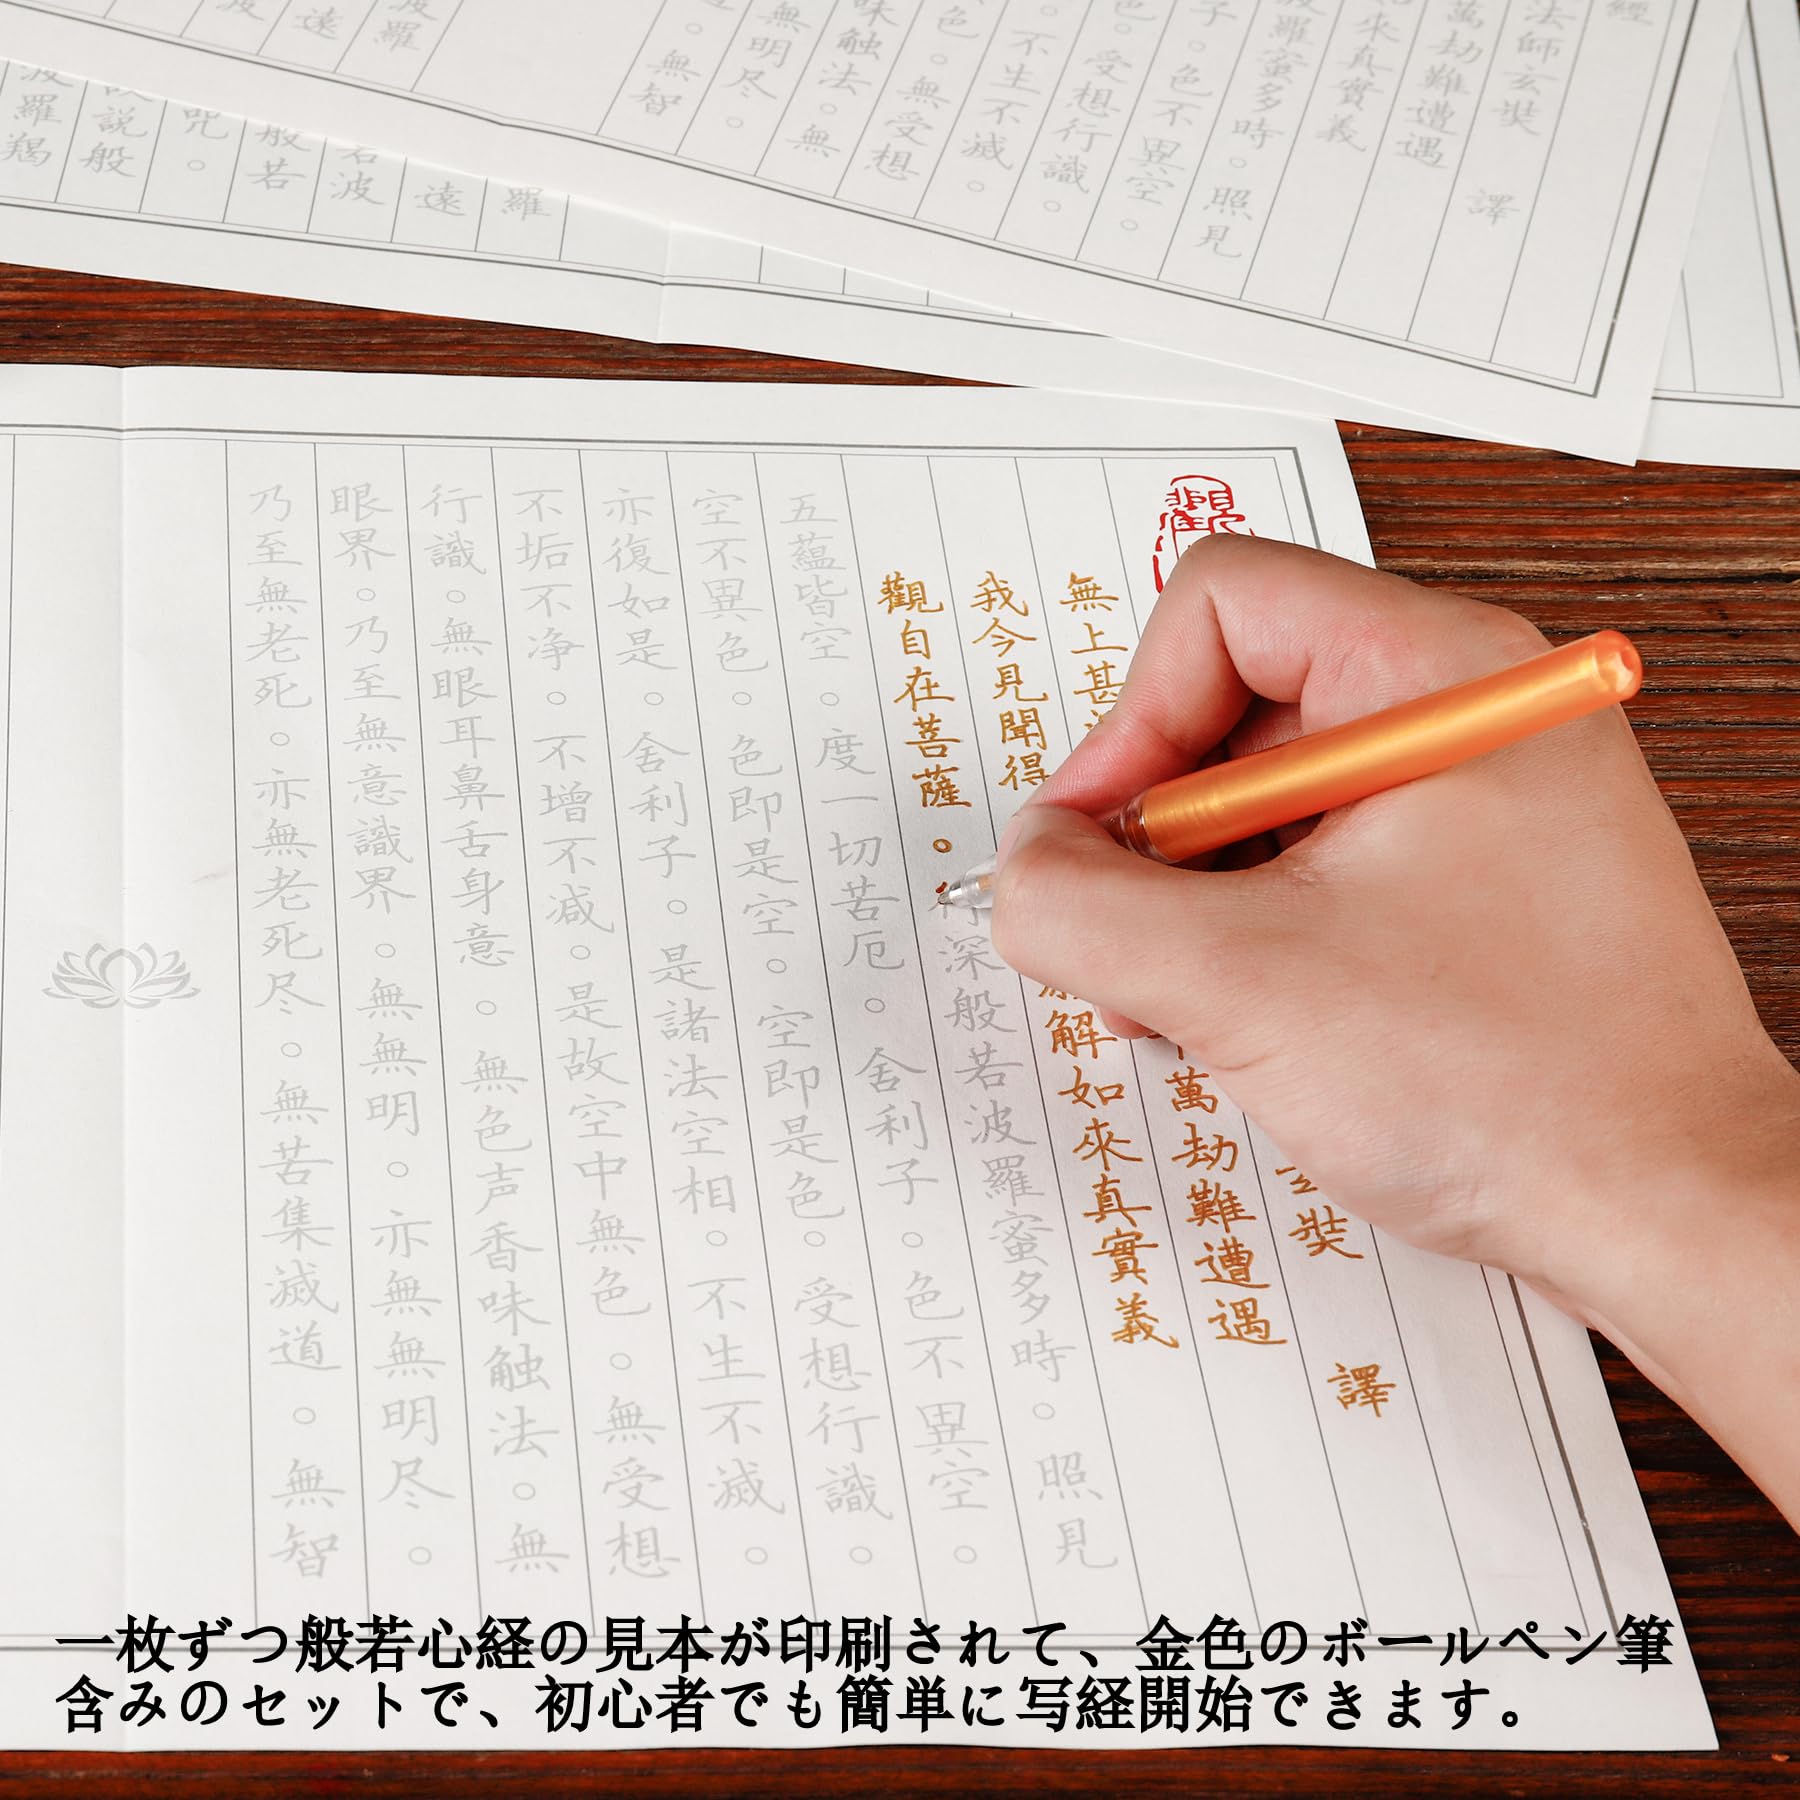 經
法師玄奘 譯
萬劫難遭遇
來真實義
羅蜜多時。照見
子。色不異空。
色。受想行識。
。不生不滅。
色。無受想
味触法。無
無明尽。
。無智
波羅
遠
羅
遠
若波
般若
咒。
説般
波羅羯
觀
玄奘 譯
無上甚 萬劫難遭遇
我今見聞得 解如來真實義
觀自在菩薩。行深般若波羅蜜多時。照見
五蘊皆空。度一切苦厄。舍利子。色不異空。
空不異色。色即是空。空即是色。受想行識。
亦復如是。舍利子。是諸法空相。不生不滅。
不垢不净。不增不减。是故空中無色。無受想
行識。無眼耳鼻舌身意。無色声香味触法。無
眼界。乃至無意識界。無無明。亦無無明尽。
乃至無老死。亦無老死尽。無苦集滅道。無智
一枚ずつ般若心経の見本が印刷されて、金色のボールペン筆
含みのセットで、初心者でも簡単に写経開始できます。